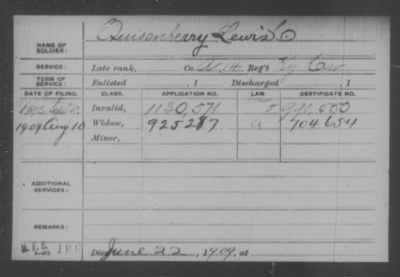 NAME OF SOLDIER: Quisenberry Lewis
SERVICE: Late rank, Co. Reg't Ky Cav
TERM OF SERVICE: Enlisted , 1 Discharged , 1
DATE OF FILING. CLASS. APPLICATION NO. LAW. CERTIFICATE NO.
Invalid, 1130,571
1909 Aug 10 Widow, 925287 a 704654
Minor,
ADDITIONAL SERVICES:
REMARKS:
Died June 22, 1909, at